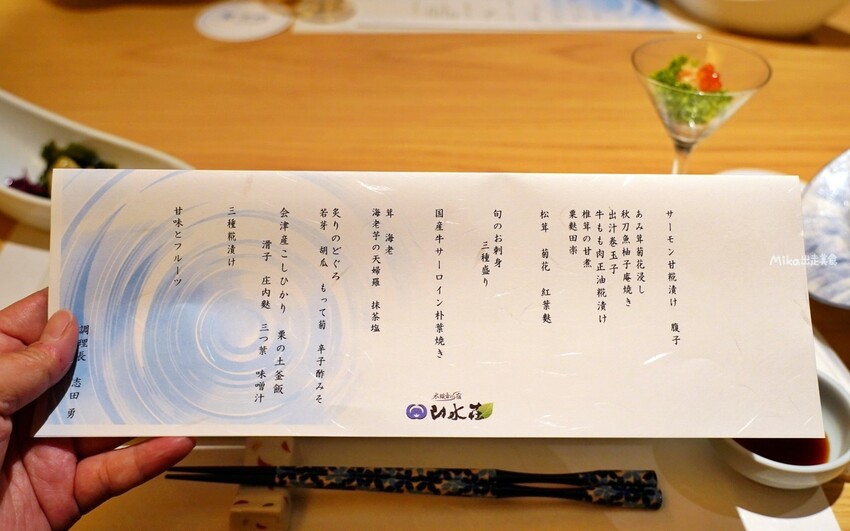 サーモン甘糀漬け　腹子
あみ茸菊花浸し
秋刀魚柚子庵焼き
出汁巻玉子
牛もも肉正油糀漬け
椎茸の甘煮
栗麩田楽
松茸　菊花　紅葉麩
旬のお刺身
三種盛り
国産牛サーロイン朴葉焼き
茸　海老
海老芋の天婦羅　抹茶塩
炙りのどぐろ
若芽　胡瓜　もって菊　辛子酢みそ
会津産こしひかり　栗の土釜飯
滑子　庄内麩　三つ葉　味噌汁
三種糀漬け
甘味とフルーツ
調理長　志田　勇
山水荘
Mika出走美食